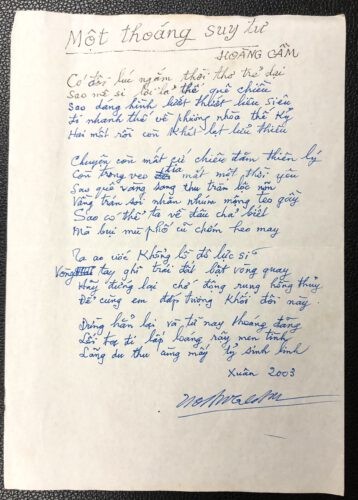 Một thoáng suy tư
HOÀNG CẦM
Có đôi lúc ngắm thời thơ trẻ dại
Sao mê si lơi lả thế quê chiều
Sao dáng hình biết thiết liêu siêu
Đi nhanh thế về phùng hóa thế kỷ
Hai mắt rồi còn khát lạt liêu thiêu
Chuyện con mắt cứ chiều đăm thiên lý
Còn trong veo tia mắt một thời yêu
Sao quê vầng sang thu trăn lộc nõn
Vầng trán sơi nhăn nhúm mộng teo gầy
Sao có thể ta về đâu chả biết
Mà bụi mù phố cũ chớm heo may
Ta ao ước Khổng lồ đô lực sĩ
Vòng tay ghì trái đất bật vòng quay
Hãy đứng lại chớ động rung hồng thủy
Để cùng em đáp tường Khối đôi này.
Đừng hẳn lại và từ nay thoáng đãng
Lối ta đi lấp loáng rẫy men tình
Lãng du thu ang mấy tỷ sinh linh
Xuân 2003